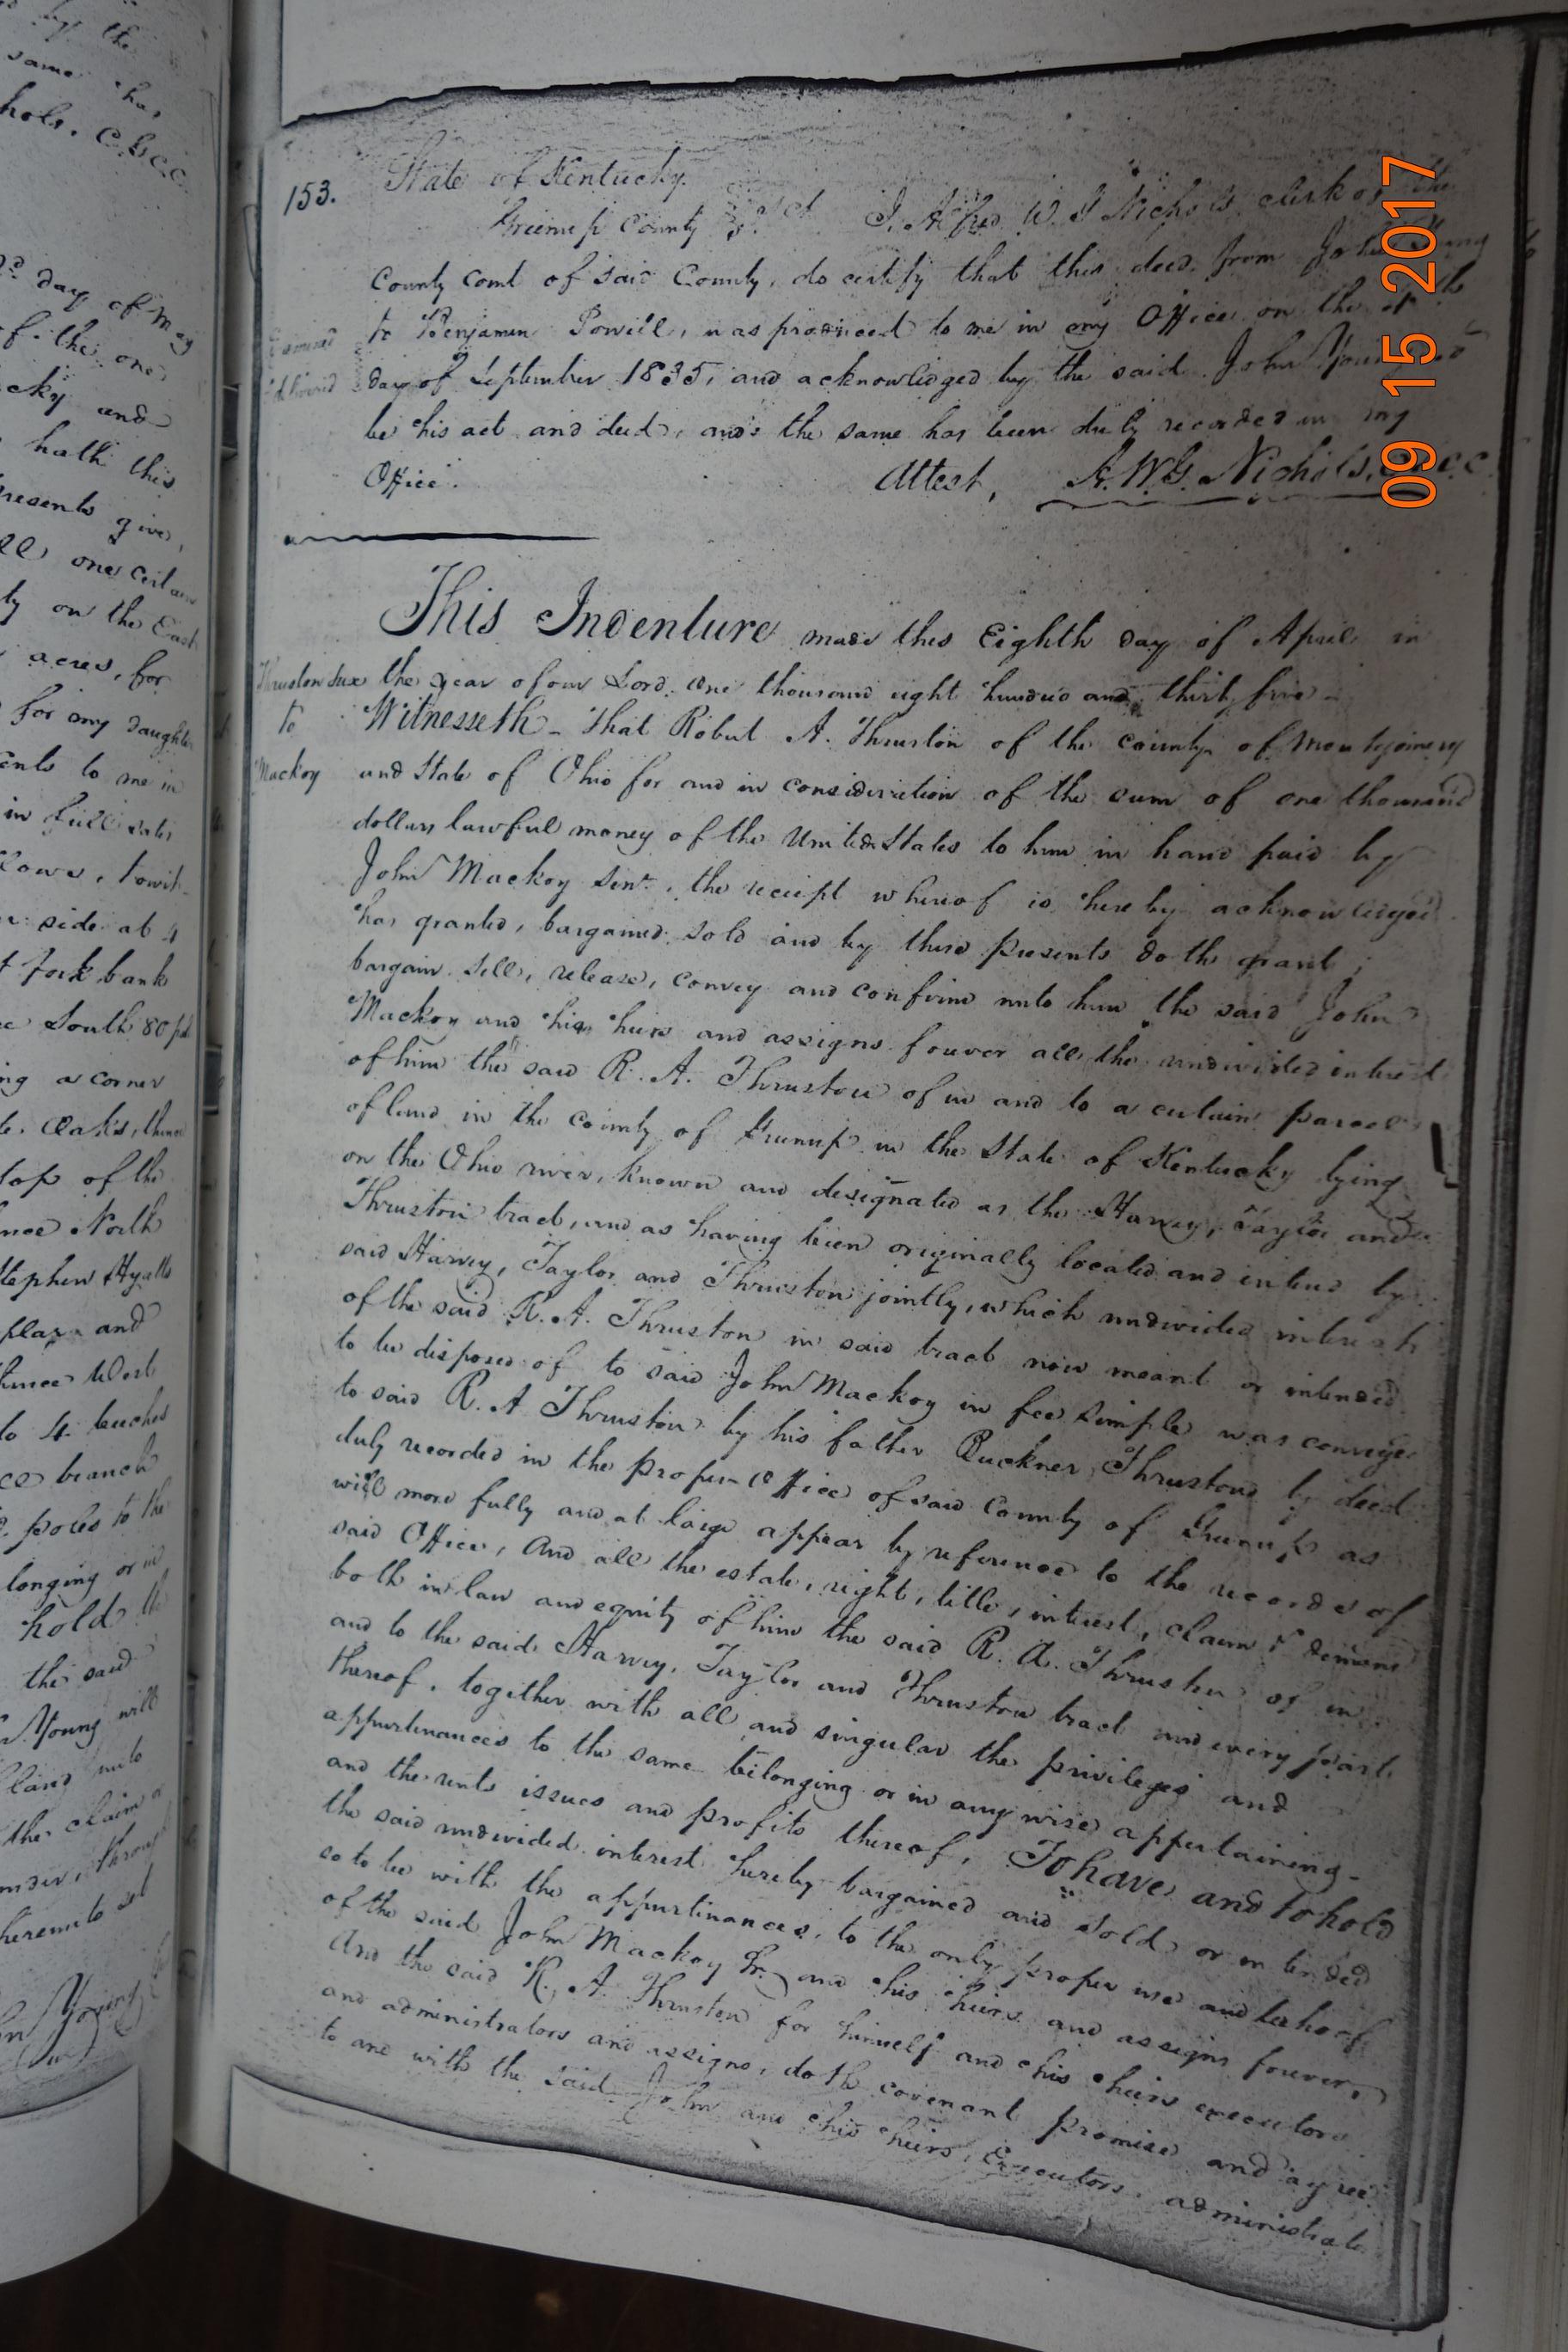 153.
State of Kentucky.
Greenup County Sct. I, W. G Nichols clerk of the
County Court of said County, do certify that this deed from John Young
to Benjamin Powell, was produced to me in my Office on the
day of September 1835, and acknowledged by the said John Young to
be his act and deed, and the same has been duly recorded in my
Office. Attest, A. W. G. Nichols, C.G.C.C.
Examined
& delivered
This Indenture made this Eighth day of April in
the year of our Lord one thousand eight hundred and thirty five
Thruston
to
Mackoy
Witnesseth - That Robert A. Thruston of the county of Montgomery
and State of Ohio for and in consideration of the sum of one thousand
dollars lawful money of the United States to him in hand paid by
John Mackoy Senr., the receipt whereof is hereby acknowledged
has granted, bargained sold and by these presents doth grant,
bargain sell, release, convey and confirm unto him the said John
Mackoy and his heirs and assigns forever all the undivided interest
of him the said R. A. Thruston of in and to a certain parcel
of land in the county of Greenup in the State of Kentucky lying
on the Ohio river, known and designated as the Harvey, Taylor and
Thruston tract, and as having been originally located and entered by
said Harvey, Taylor and Thruston jointly, which undivided interest
of the said R. A. Thruston in said tract now meant or intended
to be disposed of to said John Mackoy in fee simple was conveyed
to said R. A Thruston by his father Buckner Thruston by deed
duly recorded in the proper Office of said County of Greenup as
will more fully and at large appear by reference to the records of
said Office, And all the estate, right, title, interest, claim & demand
both in law and equity of him the said R. A. Thruston of in
and to the said Harvey, Taylor and Thruston tract and every part
thereof, together with all and singular the privileges and
appurtinances to the same belonging or in any wise appertaining
and the rents issues and profits thereof, To have and to hold
the said undivided interest hereby bargained and sold or intended
so to be with the appurtinances, to the only proper use and behoof
of the said John Mackoy Sr. and his heirs and assigns forever,
And the said R. A. Thruston for himself and his heirs executors
and administrators and assigns, doth covenant promise and agree
to and with the said John and his heirs, Executors, administrato
09 15 2017
same has
hols. C.G.C.C.
day of May
of the one
cky and
hath this
presents give,
one certain
ly on the East
acres, for
for my daughter
ents to me in
in full satis
lows, towit
side at 4
t fork bank
South 80 po
ng a corner
Oaks, thence
top of the
North
Stephen Hyatts
and
thence West
to 4 beeches
branch
poles to the
longing or in
hold the
the said
Young will
land unto
the claim
hereunto set
Young